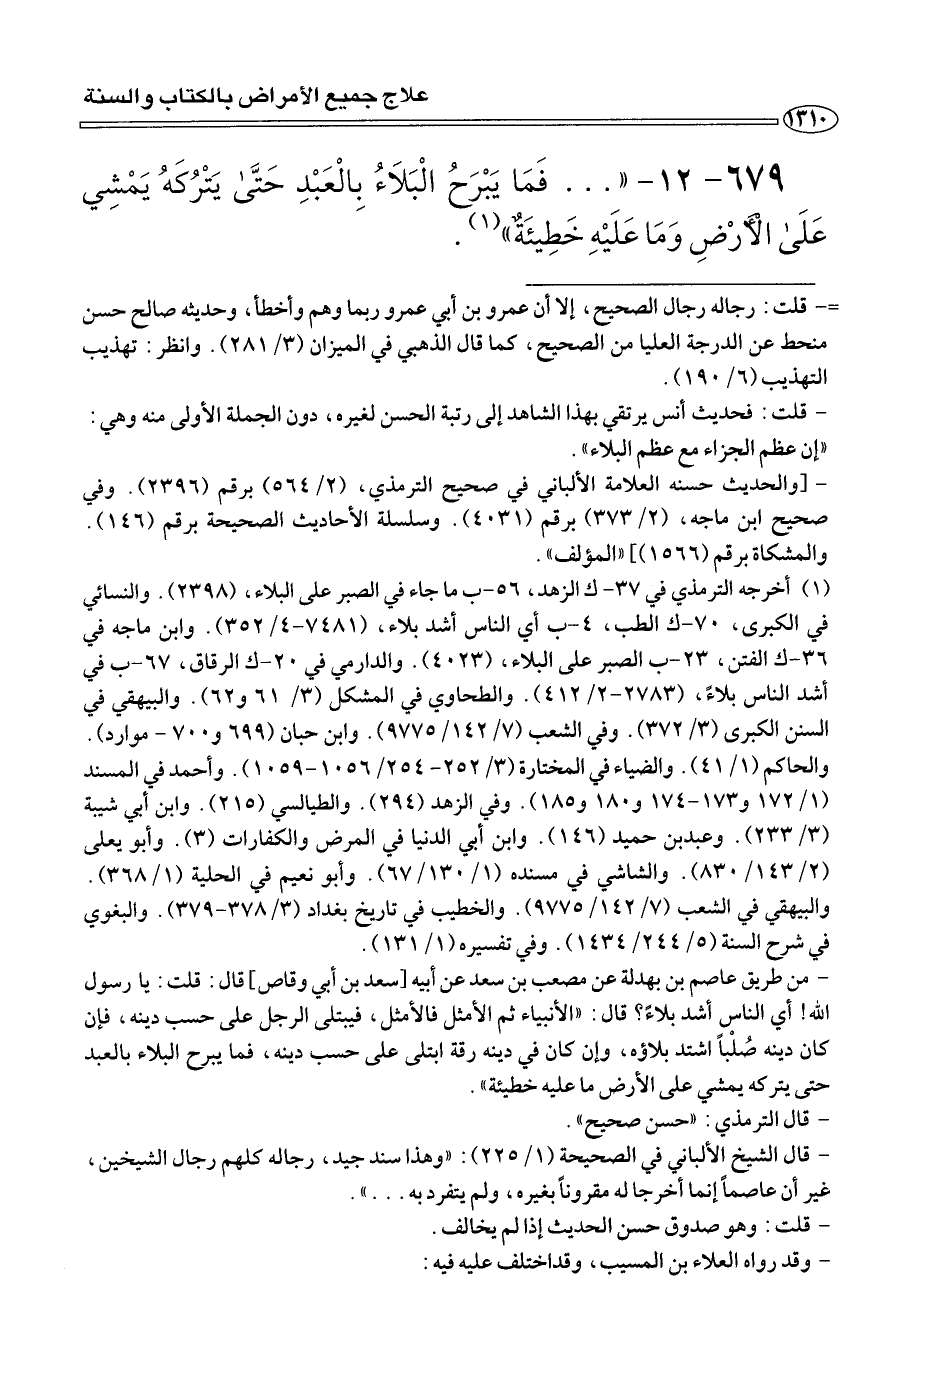 علاج جميع الأمراض بالكتاب والسنة
١٣١٠
٦٧٩- ١٢- «... فَمَا يَبْرَحُ الْبَلَاءُ بِالْعَبْدِ حَتَّىٰ يَتْرُكَهُ يَمْشِي
عَلَىٰ الْأَرْضِ وَمَا عَلَيْهِ خَطِيئَةٌ»(١).
=- قلت: رجاله رجال الصحيح، إلا أن عمرو بن أبي عمرو ربما وهم وأخطأ، وحديثه صالح حسن
منحط عن الدرجة العليا من الصحيح، كما قال الذهبي في الميزان (٣/ ٢٨١). وانظر: تهذيب
التهذيب (٦/ ١٩٠).
- قلت: فحديث أنس يرتقي بهذا الشاهد إلى رتبة الحسن لغيره، دون الجملة الأولى منه وهي:
«إن عظم الجزاء مع عظم البلاء».
- [والحديث حسنه العلامة الألباني في صحيح الترمذي، (٢/ ٥٦٤) برقم (٢٣٩٦). وفي
صحيح ابن ماجه، (٢/ ٣٧٣) برقم (٤٠٣١). وسلسلة الأحاديث الصحيحة برقم (١٤٦).
والمشكاة برقم (١٥٦٦)] «المؤلف».
(١) أخرجه الترمذي في ٣٧- ك الزهد، ٥٦-ب ما جاء في الصبر على البلاء، (٢٣٩٨). والنسائي
في الكبرى، ٧٠-ك الطب، ٤-ب أي الناس أشد بلاء، (٧٤٨١-٤/ ٣٥٢). وابن ماجه في
٣٦-ك الفتن، ٢٣-ب الصبر على البلاء، (٤٠٢٣). والدارمي في ٢٠-ك الرقاق، ٦٧-ب في
أشد الناس بلاءً، (٢٧٨٣-٢/ ٤١٢). والطحاوي في المشكل (٣/ ٦١ و٦٢). والبيهقي في
السنن الكبرى (٣/ ٣٧٢). وفي الشعب (٧/ ١٤٢/ ٩٧٧٥). وابن حبان (٦٩٩ و٧٠٠ - موارد).
والحاكم (١/ ٤١). والضياء في المختارة (٣/ ٢٥٢- ٢٥٤/ ١٠٥٦-١٠٥٩). وأحمد في المسند
(١/ ١٧٢ و١٧٣-١٧٤ و١٨٠ و١٨٥). وفي الزهد (٢٩٤). والطيالسي (٢١٥). وابن أبي شيبة
(٣/ ٢٣٣). وعبدبن حميد (١٤٦). وابن أبي الدنيا في المرض والكفارات (٣). وأبو يعلى
(٢/ ١٤٣/ ٨٣٠). والشاشي في مسنده (١/ ١٣٠/ ٦٧). وأبو نعيم في الحلية (١/ ٣٦٨).
والبيهقي في الشعب (٧/ ١٤٢/ ٩٧٧٥). والخطيب في تاريخ بغداد (٣/ ٣٧٨-٣٧٩). والبغوي
في شرح السنة (٥/ ٢٤٤/ ١٤٣٤). وفي تفسيره (١/ ١٣١).
- من طريق عاصم بن بهدلة عن مصعب بن سعد عن أبيه [سعد بن أبي وقاص] قال: قلت: يا رسول
الله! أي الناس أشد بلاءً؟ قال: «الأنبياء ثم الأمثل فالأمثل، فيبتلى الرجل على حسب دينه، فإن
كان دينه صُلْباً اشتد بلاؤه، وإن كان في دينه رقة ابتلى على حسب دينه، فما يبرح البلاء بالعبد
حتى يتركه يمشي على الأرض ما عليه خطيئة».
- قال الترمذي: «حسن صحيح».
- قال الشيخ الألباني في الصحيحة (١/ ٢٢٥): «وهذا سند جيد، رجاله كلهم رجال الشيخين،
غير أن عاصماً إنما أخرجا له مقروناً بغيره، ولم يتفرد به...».
- قلت: وهو صدوق حسن الحديث إذا لم يخالف.
- وقد رواه العلاء بن المسيب، وقداختلف عليه فيه: